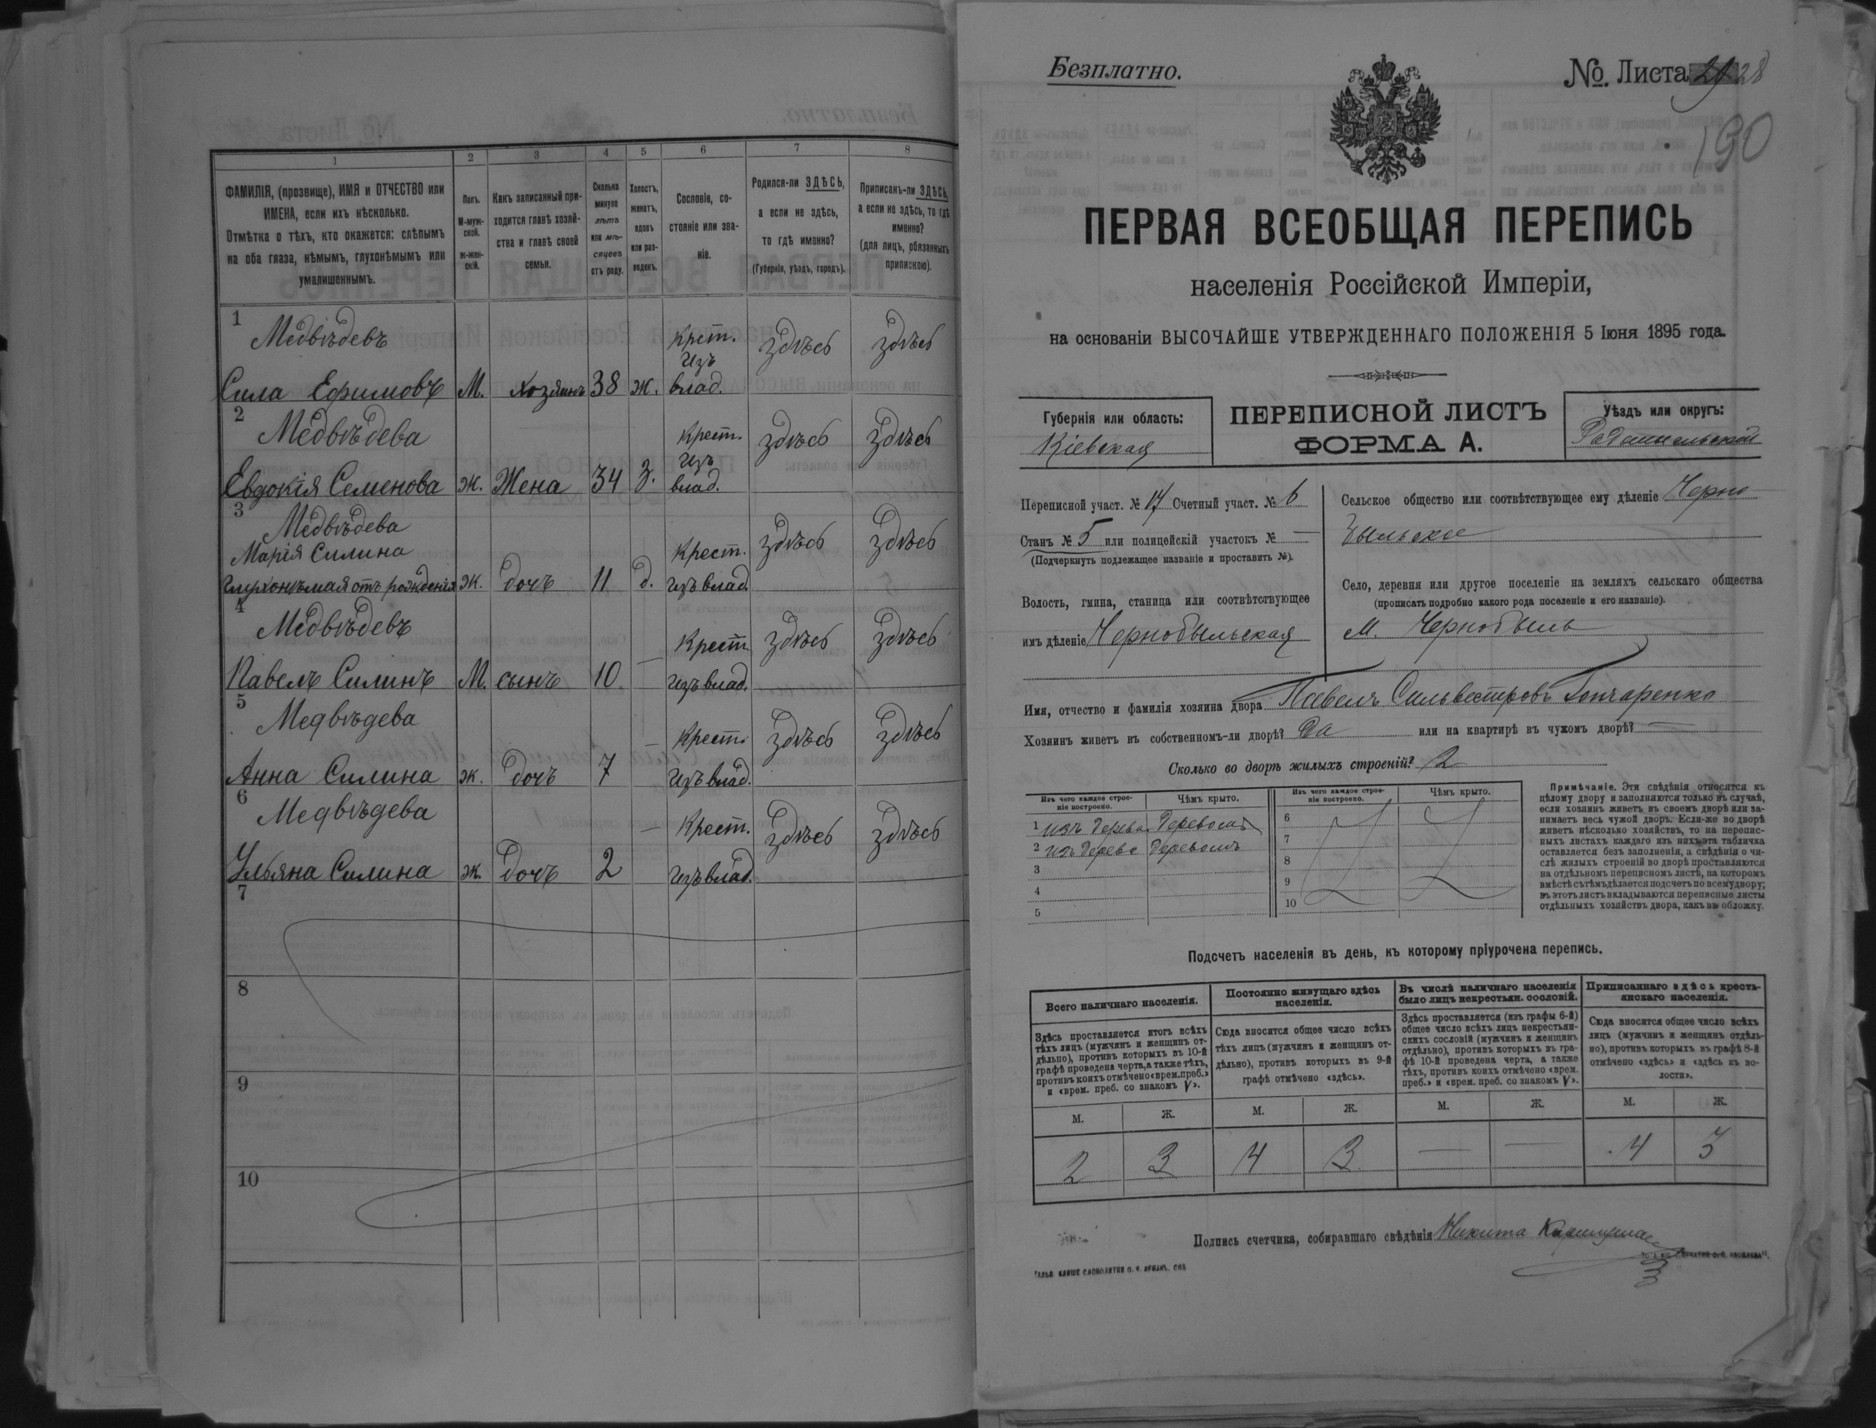 1 2 3 4 5 6 7 8
ФАМИЛІЯ, (прозвище), ИМЯ и ОТЧЕСТВО или
ИМЕНА, если ихъ нѣсколько.
Отмѣтка о тѣхъ, кто окажется: слѣпымъ
на оба глаза, нѣмымъ, глухонѣмымъ или
умалишеннымъ.
Полъ.
М-муж-
ской.
Ж-жен-
скій.
Какъ записанный при-
ходится главѣ хозяй-
ства и главѣ своей
семьи.
Сколько
минуло
лѣтъ
или мѣ-
сяцевъ
отъ роду.
Холостъ,
женатъ,
вдовъ
или раз-
веденъ.
Сословіе, со-
стояніе или зва-
ніе.
Родился-ли ЗДѢСЬ,
а если не здѣсь,
то гдѣ именно?
(Губернія, уѣздъ, городъ).
Приписанъ-ли ЗДѢСЬ,
а если не здѣсь, то гдѣ
именно?
(для лицъ, обязанныхъ
припискою).
1
Медвѣдевъ
Сила Ефимовъ М. хозяинъ 38 ж. Крест. изъ влад. здѣсь здѣсь
2
Медвѣдева
Евдокія Семенова ж. Жена 34 з. Крест. изъ влад. здѣсь здѣсь
3
Медвѣдева
Марія Силина
глухонѣмая отъ рожденія ж. дочь 11 д. Крест. изъ влад. здѣсь здѣсь
4
Медвѣдевъ
Павелъ Силинъ М. сынъ 10 — Крест. изъ влад. здѣсь здѣсь
5
Медвѣдева
Анна Силина ж. дочь 7 — Крест. изъ влад. здѣсь здѣсь
6
Медвѣдева
Ульяна Силина ж. дочь 2 — Крест. изъ влад. здѣсь здѣсь
7
8
9
10
Безплатно.
№. Листа 28
190
ПЕРВАЯ ВСЕОБЩАЯ ПЕРЕПИСЬ
населенія Россійской Имперіи,
на основаніи ВЫСОЧАЙШЕ УТВЕРЖДЕННАГО ПОЛОЖЕНІЯ 5 Іюня 1895 года.
Губернія или область:
Кіевская
ПЕРЕПИСНОЙ ЛИСТЪ
ФОРМА А.
Уѣздъ или округъ:
Радомысльскій
Переписной участ. № 17 Счетный участ. № 6
Станъ № 5 или полицейскій участокъ № —
(Подчеркнуть подлежащее названіе и проставить №).
Волость, гмина, станица или соотвѣтствующее
имъ дѣленіе Чернобыльская
Сельское общество или соотвѣтствующее ему дѣленіе Черно
быльское
Село, деревня или другое поселеніе на земляхъ сельскаго общества
(прописать подробно какого рода поселеніе и его названіе).
М. Чернобыль
Имя, отчество и фамилія хозяина двора Павелъ Сильвестровъ Гончаренко
Хозяинъ живетъ въ собственномъ-ли дворѣ? Да или на квартирѣ въ чужомъ дворѣ? —
Сколько во дворѣ жилыхъ строеній? 2
Изъ чего каждое строе-
ніе построено.
Чѣмъ крыто.
Изъ чего каждое строе-
ніе построено.
Чѣмъ крыто.
1 изъ дерева Деревомъ
2 изъ дерева Деревомъ
3
4
5
6
7
8
9
10
Примѣчаніе. Эти свѣдѣнія относятся къ
цѣлому двору и заполняются только въ случаѣ,
если хозяинъ живетъ въ своемъ дворѣ или за-
нимаетъ весь чужой дворъ. Если-же во дворѣ
живетъ нѣсколько хозяйствъ, то на перепис-
ныхъ листахъ каждаго изъ нихъ эта табличка
оставляется безъ заполненія, а свѣдѣнія о чи-
слѣ жилыхъ строеній во дворѣ проставляются
на отдѣльномъ переписномъ листѣ, на которомъ
вмѣстѣ съ тѣмъ дѣлается подсчетъ по всему двору;
въ этотъ листъ вкладываются переписные листы
отдѣльныхъ хозяйствъ двора, какъ въ обложку.
Подсчетъ населенія въ день, къ которому пріурочена перепись.
Всего наличнаго населенія.
Здѣсь проставляется итогъ всѣхъ
тѣхъ лицъ (мужчинъ и женщинъ от-
дѣльно), противъ которыхъ въ 10-й
графѣ проведена черта, а также тѣхъ,
противъ коихъ отмѣчено «врем. преб.»
и «врем. преб. со знакомъ V».
Постоянно живущаго здѣсь
населенія.
Сюда вносится общее число всѣхъ
тѣхъ лицъ (мужчинъ и женщинъ от-
дѣльно), противъ которыхъ въ 9-й
графѣ отмѣчено «здѣсь».
Въ числѣ наличнаго населенія
было лицъ некрестьян. сословій.
Здѣсь проставляется (изъ графы 6-й)
общее число всѣхъ лицъ некрестьян-
скихъ сословій (мужчинъ и женщинъ
отдѣльно), противъ которыхъ въ гра-
фѣ 10-й проведена черта, а также
тѣхъ, противъ коихъ отмѣчено «врем.
преб.» и «врем. преб. со знакомъ V».
Приписаннаго здѣсь кресть-
янскаго населенія.
Сюда вносится общее число всѣхъ
лицъ (мужчинъ и женщинъ отдѣль-
но), противъ которыхъ въ графѣ 8-й
отмѣчено «здѣсь» и «здѣсь въ во-
лости».
М. Ж. М. Ж. М. Ж. М. Ж.
2 3 4 3 — — 4 3
Подпись счетчика, собиравшаго свѣдѣнія Никита